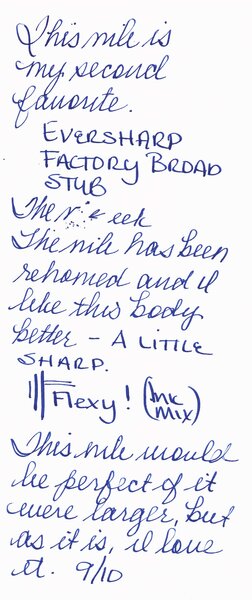 This nib is
my second
favorite.
EVERSHARP
FACTORY BROAD
STUB
The eek
The nib has been
rehomed and I
like this body
better - A LITTLE
SHARP.
Flexy! (INK
MIX)
This nib would
be perfect if it
were larger, but
as it is, I love
it. 9/10